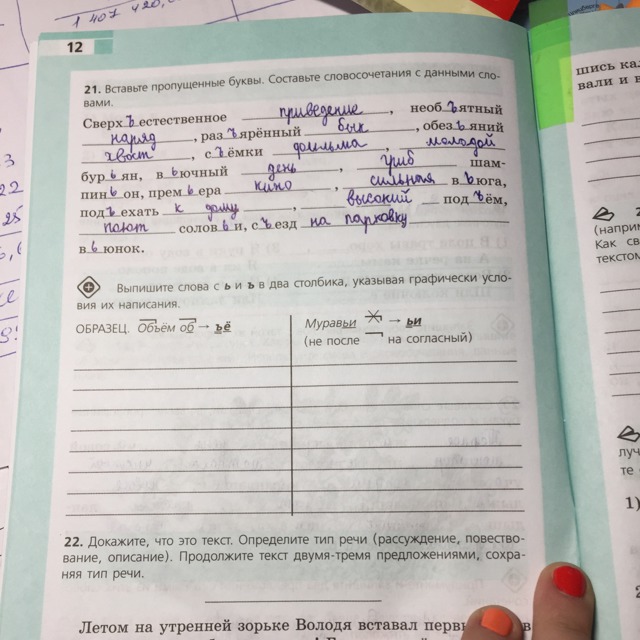 1 407 420,
12
21. Вставьте пропущенные буквы. Составьте словосочетания с данными сло-
вами.
Сверхъестественное приведение, необъятный
наряд, разъярённый бык, обезьяний
хвост, съёмки фильма, молодой
бурьян, вьючный день, гриб шам-
пиньон, премьера кино, сильная вьюга,
подъехать к дому, высокий подъём,
поют соловьи, съезд на парковку
вьюнок.
Выпишите слова с ь и ъ в два столбика, указывая графически усло-
вия их написания.
ОБРАЗЕЦ. Объём об → ъё
Муравьи → ьи
(не после на согласный)
22. Докажите, что это текст. Определите тип речи (рассуждение, повество-
вание, описание). Продолжите текст двумя-тремя предложениями, сохра-
няя тип речи.
Летом на утренней зорьке Володя вставал
шись
вали и в
(наприм
Как св
тексто
луч
те
1)